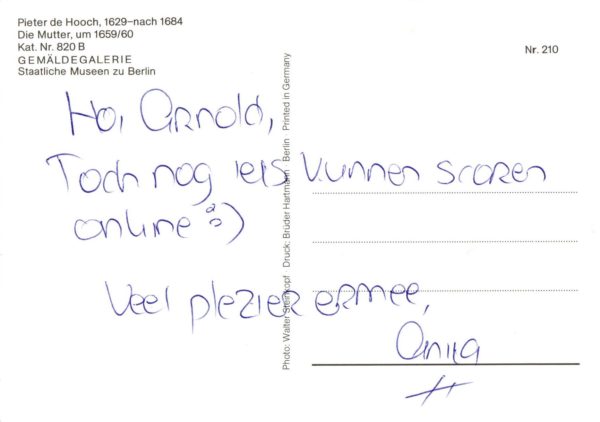 Pieter de Hooch, 1629–nach 1684
Die Mutter, um 1659/60
Kat. Nr. 820 B
GEMÄLDEGALERIE
Staatliche Museen zu Berlin
Nr. 210
Photo: Walter Steinkopf Druck: Brüder Hartmann Berlin Printed in Germany
Hoi Arnold,
Toch nog iets kunnen scoren
online :)
Veel plezier ermee,
Anita